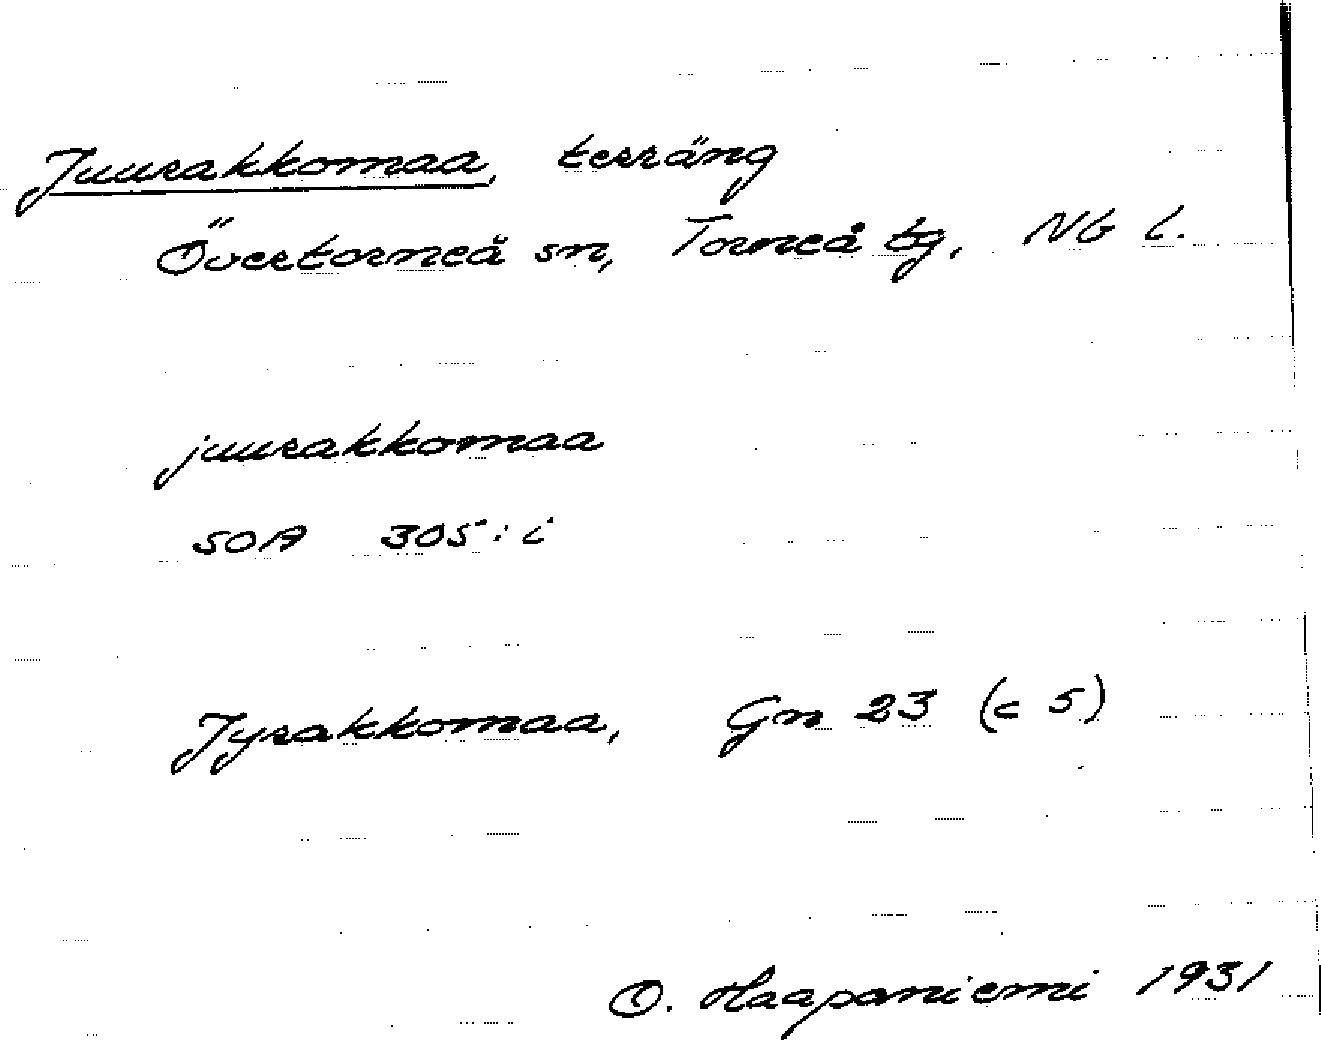 Juurakkomaa, terräng
Övertorneå sn, Torneå tg, NB L.
juurakkomaa
SOA 305:i
Jyrakkomaa, Gn 23 (c 5)
O. Haapaniemi 1931